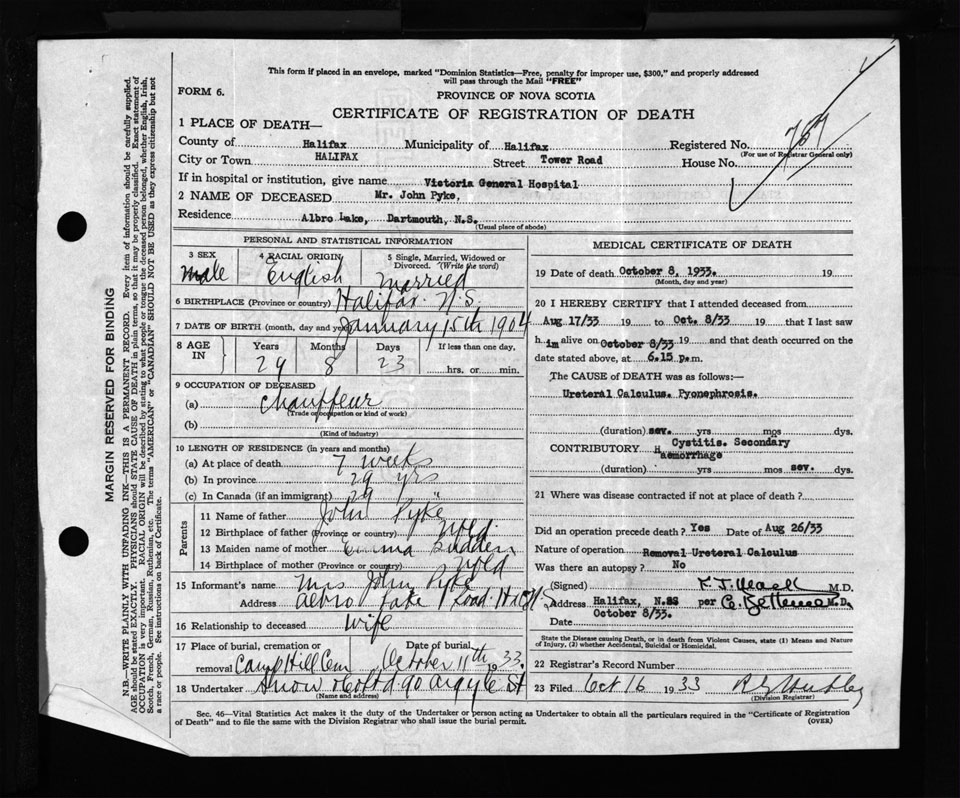 This form if placed in an envelope, marked "Dominion Statistics—Free, penalty for improper use, $300," and properly addressed
will pass through the Mail "FREE"
FORM 6.
PROVINCE OF NOVA SCOTIA
CERTIFICATE OF REGISTRATION OF DEATH
1 PLACE OF DEATH—
County of Halifax Municipality of Halifax Registered No. 757
(For use of Registrar General only)
City or Town HALIFAX Street Tower Road House No.
If in hospital or institution, give name Victoria General Hospital
2 NAME OF DECEASED Mr. John Pyke,
Residence Albro Lake, Dartmouth, N.S.
(Usual place of abode)
PERSONAL AND STATISTICAL INFORMATION
3 SEX 4 RACIAL ORIGIN 5 Single, Married, Widowed or
Divorced. (Write the word)
Male English Married
6 BIRTHPLACE (Province or country) Halifax N.S.
7 DATE OF BIRTH (month, day and year) January 15th 1904
8 AGE IN Years Months Days If less than one day,
29 8 23 hrs. or min.
9 OCCUPATION OF DECEASED
(a) Chauffeur
(Trade or occupation or kind of work)
(b)
(Kind of industry)
10 LENGTH OF RESIDENCE (in years and months)
(a) At place of death 7 weeks
(b) In province 29 yrs
(c) In Canada (if an immigrant) 29 "
Parents
11 Name of father John Pyke
12 Birthplace of father (Province or country) Nfld.
13 Maiden name of mother Emma Budden
14 Birthplace of mother (Province or country) Nfld
15 Informant's name Mrs John Pyke
Address Albro Lake Road
16 Relationship to deceased Wife
17 Place of burial, cremation or Date of burial
removal Camp Hill Cem October 11th 1933.
18 Undertaker Snow & Co Ltd 90 Argyle St
(Name and address)
MEDICAL CERTIFICATE OF DEATH
19 Date of death October 8, 1933. 19
(Month, day and year)
20 I HEREBY CERTIFY that I attended deceased from
Aug 17/33 19 to Oct. 8/33 19 that I last saw
h im alive on October 8/33 19 and that death occurred on the
date stated above, at 6.15 p.m.
The CAUSE OF DEATH was as follows:—
Ureteral Calculus. Pyonephrosis.
(duration) sev. yrs mos dys.
CONTRIBUTORY Cystitis. Secondary
Haemorrhage
(duration) yrs mos sev. dys.
21 Where was disease contracted if not at place of death?
Did an operation precede death? Yes Date of Aug 26/33
Nature of operation Removal Ureteral Calculus
Was there an autopsy? No
(Signed) M.D.
Address Halifax, N.SS per M.D.
Date October 8/33.
State the Disease causing Death, or in death from Violent Causes, state (1) Means and Nature
of Injury, (2) whether Accidental, Suicidal or Homicidal.
22 Registrar's Record Number
23 Filed Oct 16 1933
(Division Registrar)
Sec. 46—Vital Statistics Act makes it the duty of the Undertaker or person acting as Undertaker to obtain all the particulars required in the "Certificate of Registration
of Death" and to file the same with the Division Registrar who shall issue the burial permit. (OVER)
MARGIN RESERVED FOR BINDING
N.B.—WRITE PLAINLY WITH UNFADING INK—THIS IS A PERMANENT RECORD. Every item of information should be carefully supplied.
AGE should be stated EXACTLY. PHYSICIANS should STATE CAUSE OF DEATH in plain terms, so that it may be properly classified. Exact statement of
OCCUPATION is very important. RACIAL ORIGIN will be described by stating to what people or tongue the deceased person belonged, whether English, Irish,
Scotch, French, German, Russian, Ruthenian, etc. The terms "AMERICAN" or "CANADIAN" SHOULD NOT BE USED as they express citizenship but not
a race or people. See instructions on back of Certificate.